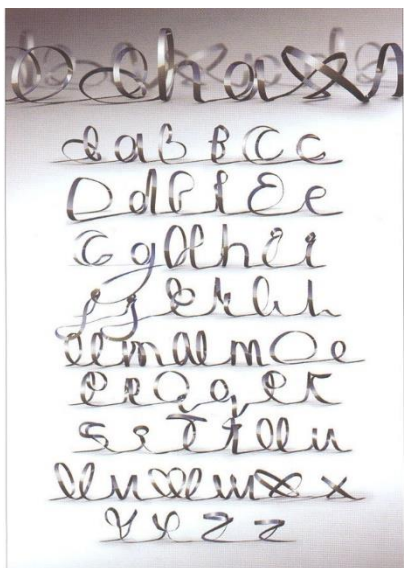 A a B b C c
D d F f E e
G g H h I i
J j K k L l
M m N n O o
P p Q q R r
S s T t U u
V v W w X x
Y y Z z